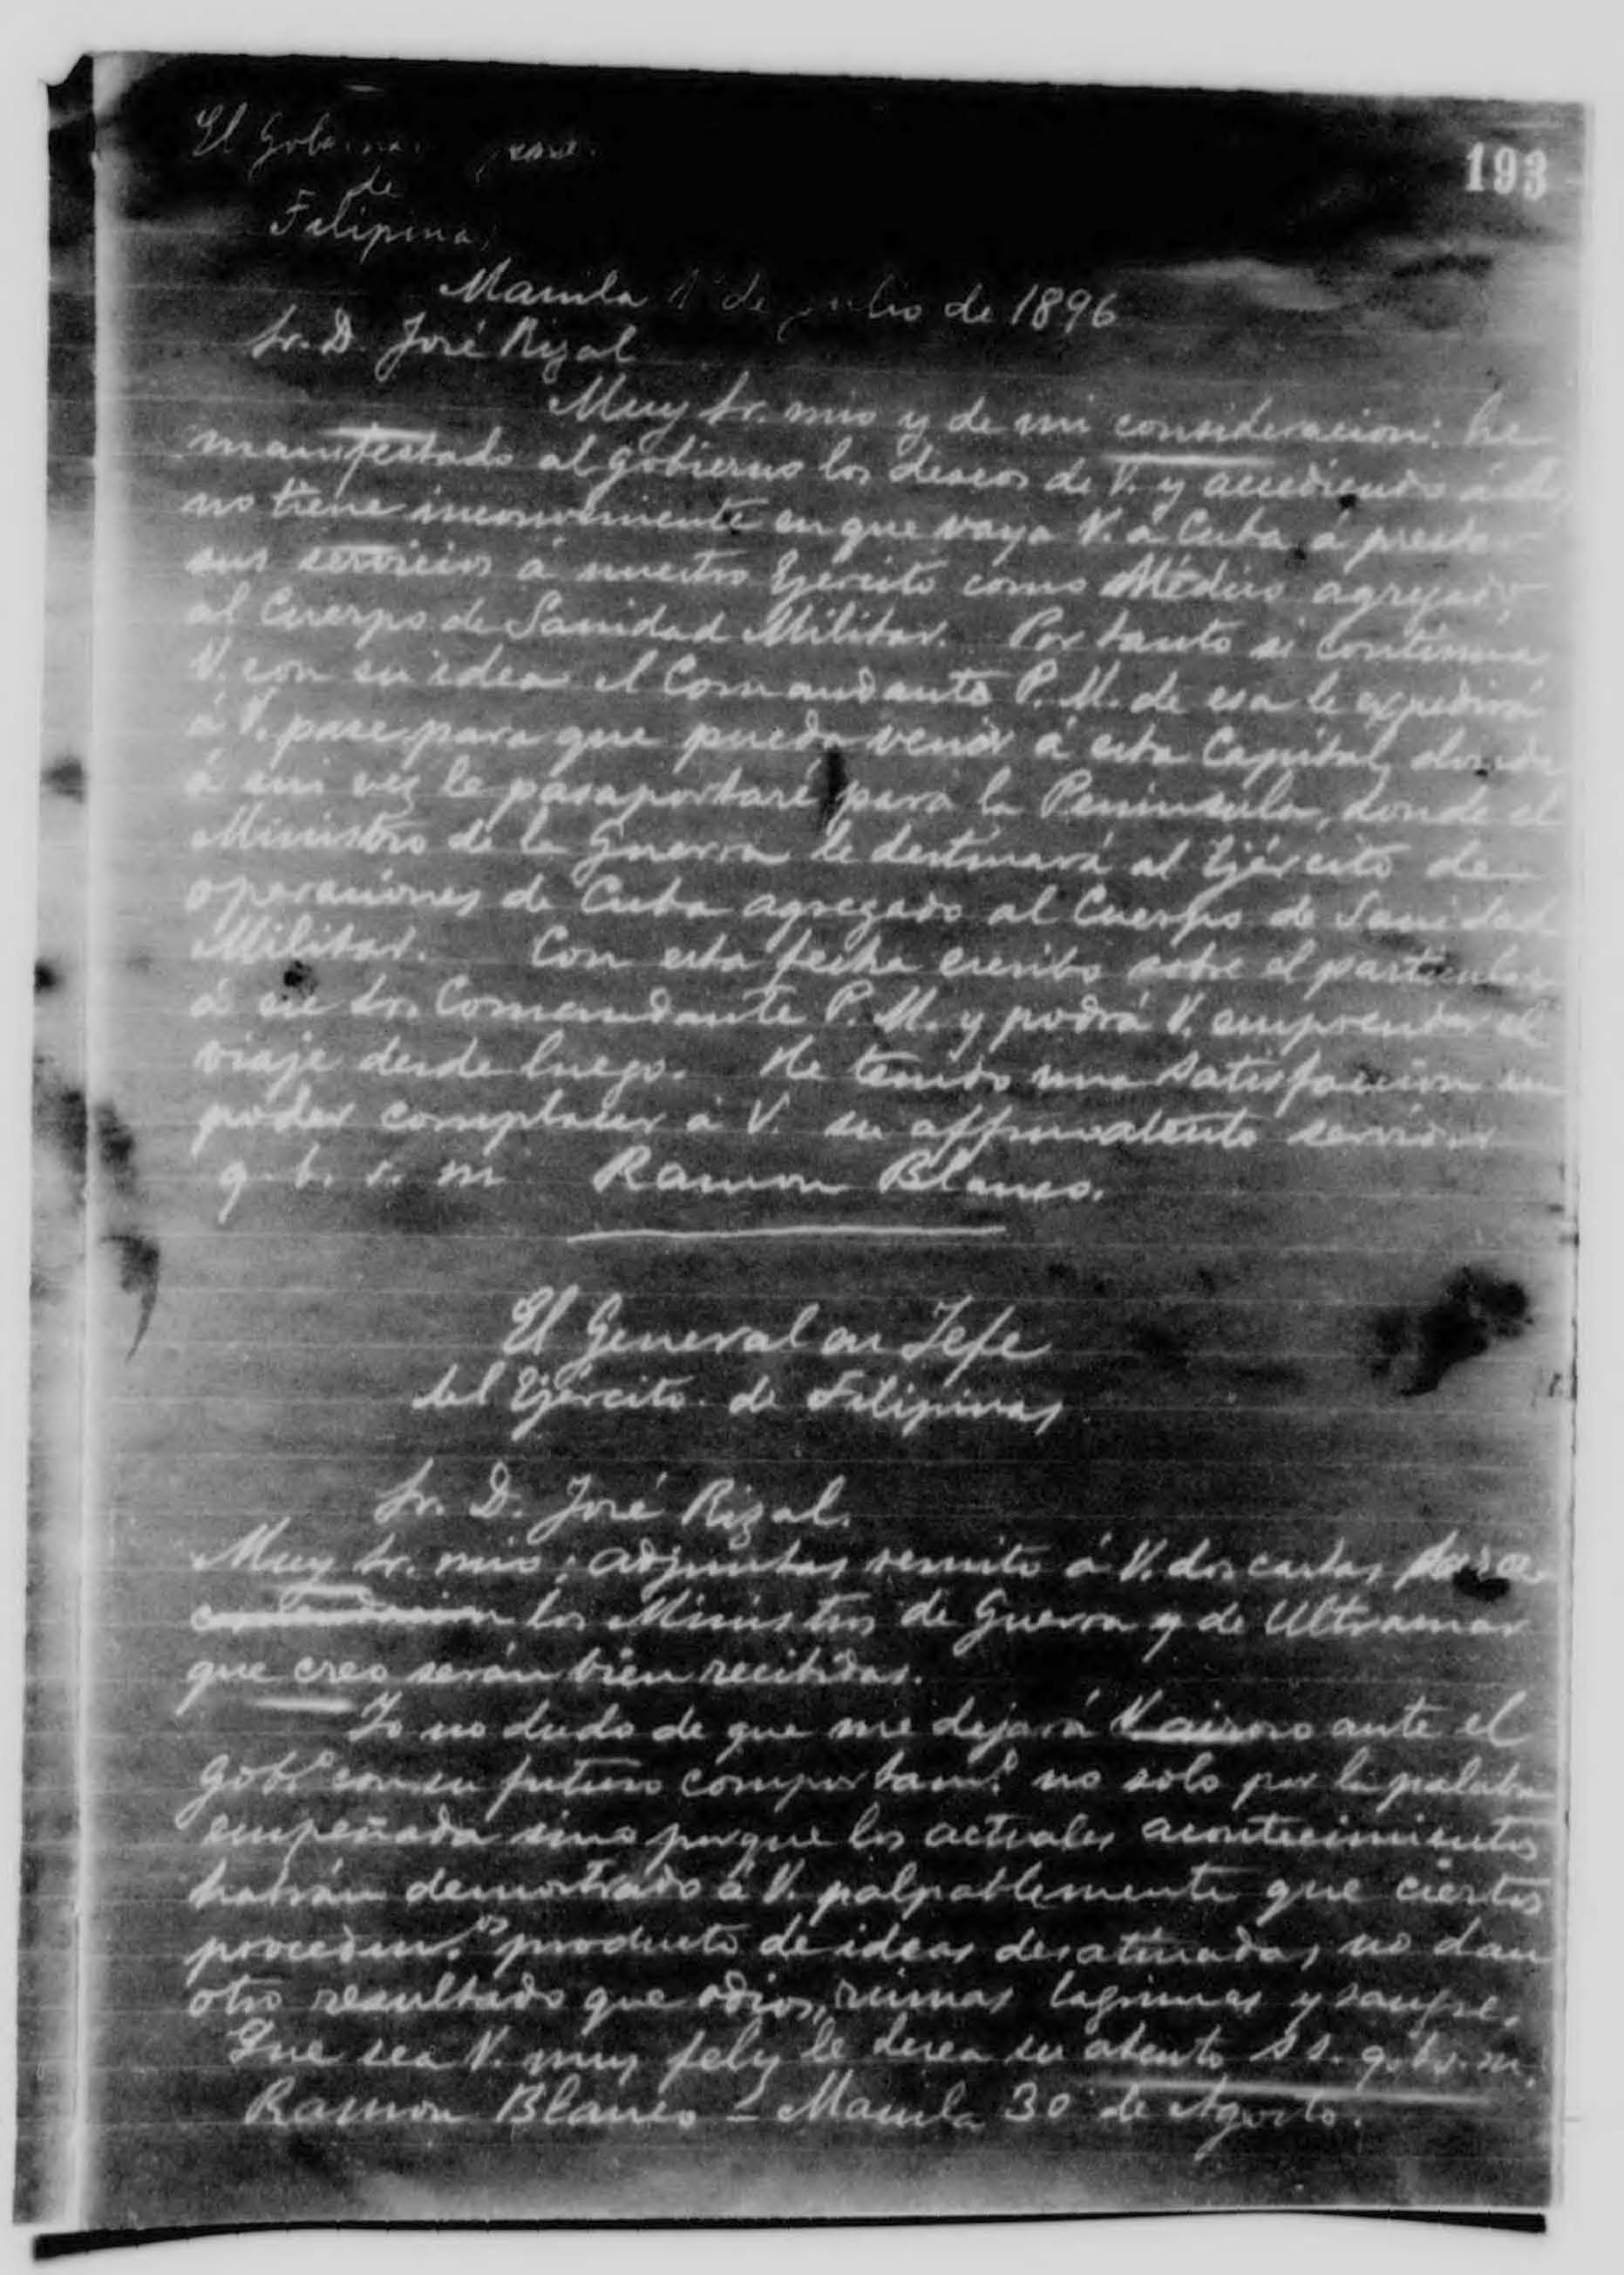 193
El Goberna
de
Filipinas
Manila 1º de julio de 1896
Sr. D. José Rizal
Muy Sr. mio y de mi consideracion: he
manifestado al gobierno los deseos de V. y accediendo á
no tiene inconveniente en que vaya V. á Cuba á prestar
sus servicios á nuestro Ejército como Médico agregado
al Cuerpo de Sanidad Militar. Por tanto si continua
V. con su idea el Comandante P. M. de esa le expedirá
á V. pase para que pueda venir á esta Capital, donde
á mi vez le pasaportaré para la Peninsula, donde el
Ministro de la Guerra le destinará al Ejército de
operaciones de Cuba agregado al Cuerpo de Sanidad
Militar. Con esta fecha escribo sobre el particular
á ese Sr. Comandante P. M. y podrá V. emprender el
viaje desde luego. He tenido una satisfaccion en
poder complacer á V. su affmo atento servidor
q. b. s. m Ramon Blanco.
El General en Jefe
del Ejército de Filipinas
Sr. D. José Rizal.
Muy Sr. mio: adjuntas remito á V. dos cartas para
los Ministros de Guerra y de Ultramar
que creo serán bien recibidas.
Yo no dudo de que me dejará V. airoso ante el
Gobº con su futuro comportamtº no solo por la palabra
empeñada sino porque los actuales acontecimientos
habrán demostrado á V. palpablemente que ciertos
procedim.os producto de ideas desatinadas, no dan
otro resultado que odios, ruinas lagrimas y sangre.
Que sea V. muy feliz le desea su atento s s. q. b. s. m.
Ramon Blanco - Manila 30 de Agosto.